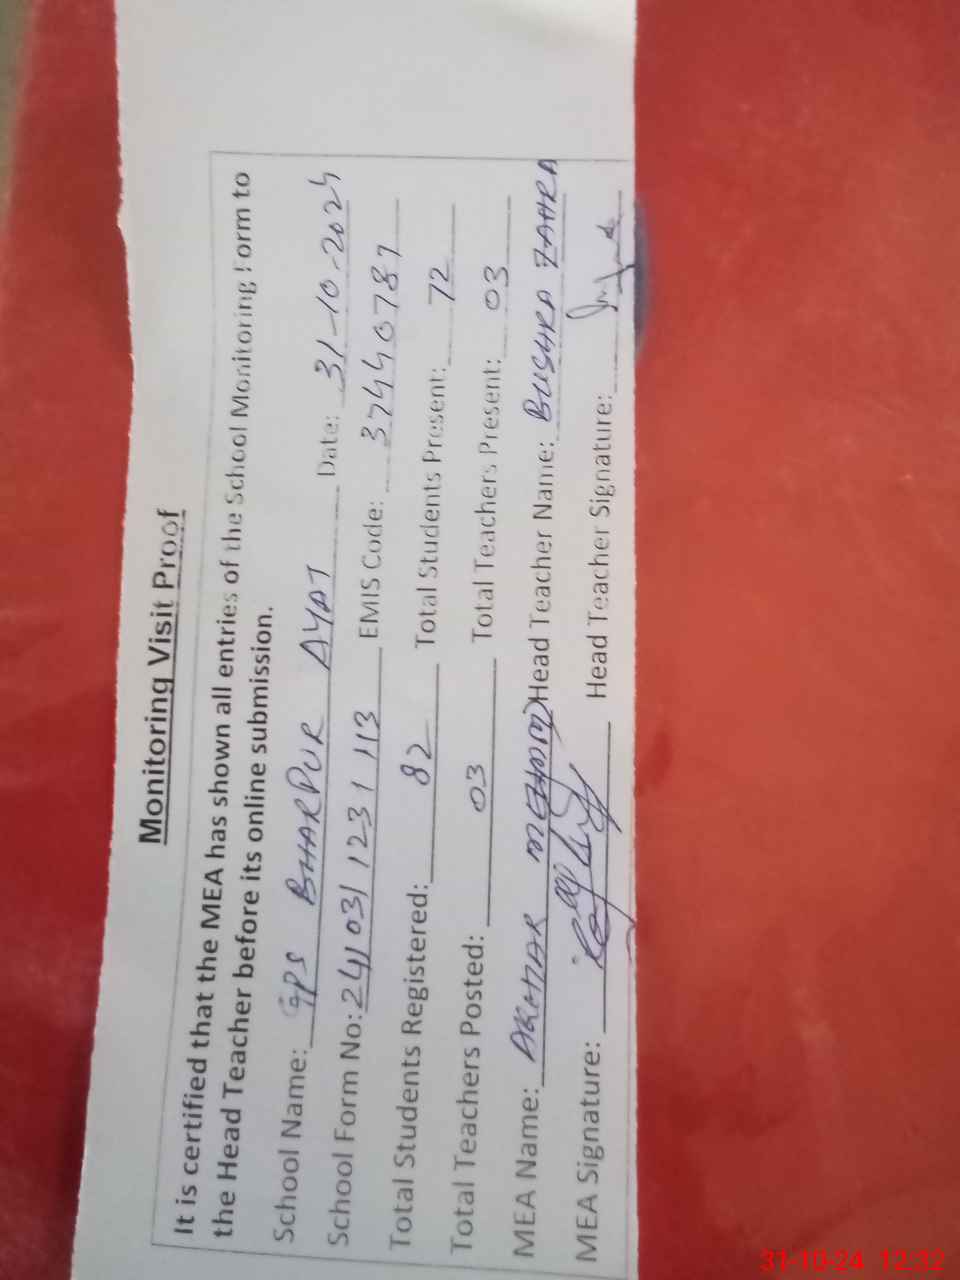 Monitoring Visit Proof
It is certified that the MEA has shown all entries of the School Monitoring Form to
the Head Teacher before its online submission.
School Name: GPS BHARPUR AYAT Date: 31-10-2024
School Form No: 241031123113 EMIS Code: 37440787
Total Students Registered: 82 Total Students Present: 72
Total Teachers Posted: 03 Total Teachers Present: 03
MEA Name: AKHTAR Head Teacher Name: BUSHRA ZAHRA
MEA Signature: Head Teacher Signature:
31-10-24 12:32